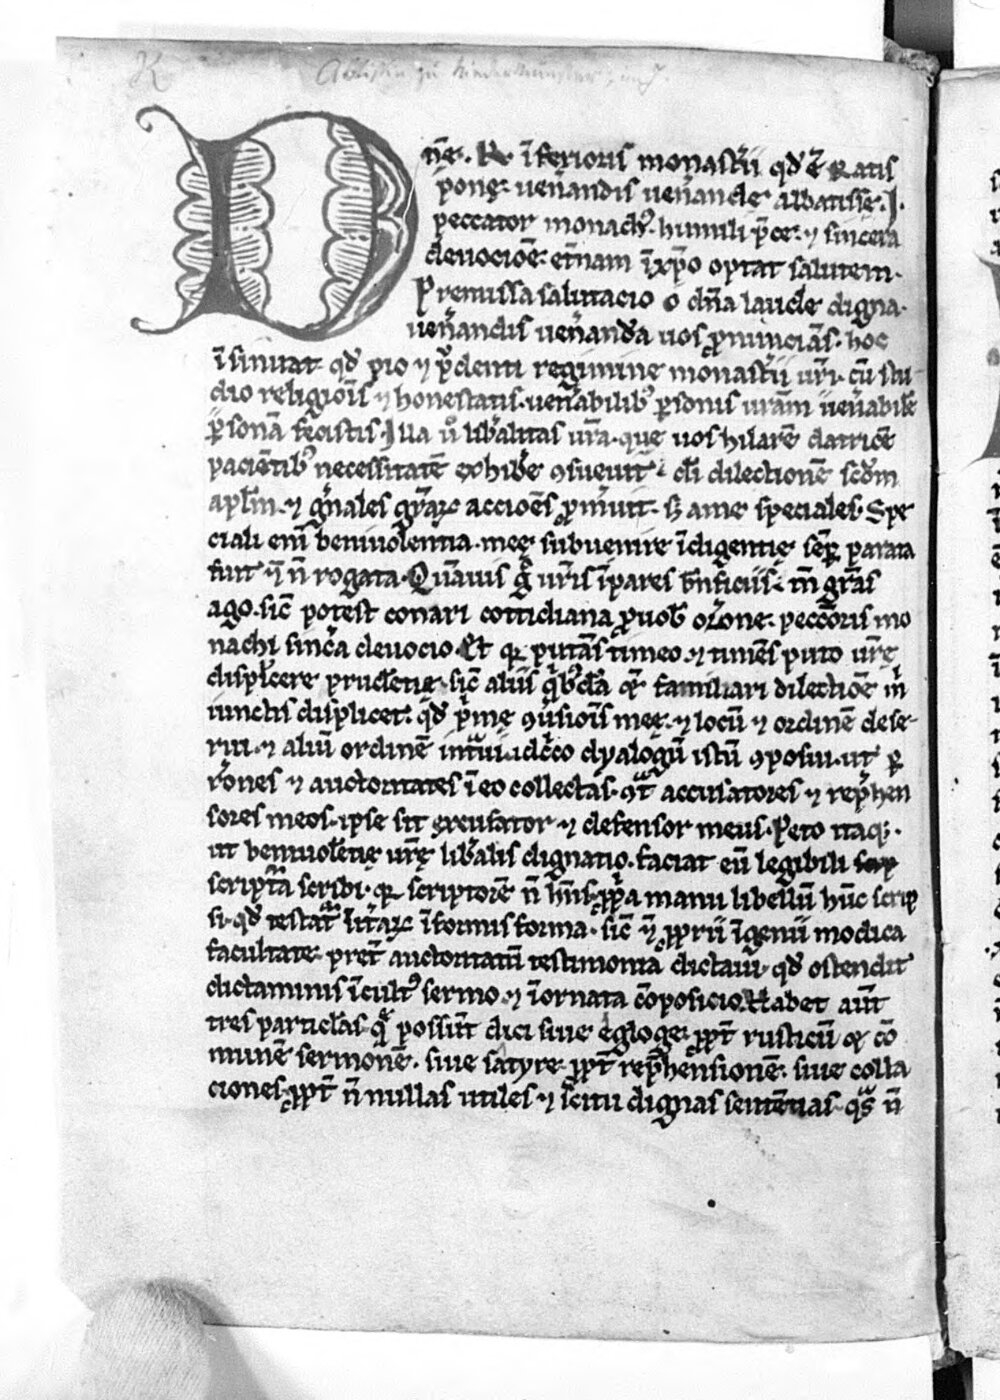 K Äbtissin zu Niedermünster
Dn̄ę. K. īferioris monast̄ii qd̓ ē Ratis
ponę. uen̄andis uen̄andę abbatissę. J.
peccator monachꝰ. humili p̄ce. ⁊ sincera
deuocioē. et̄nam ī xp̄o optat salutem.
Premissa salutacio o dn̄a laude digna.
uen̄andis uen̄anda uos ꝓnuncians. hoc
īsinuat. qd̓ pio ⁊ prudenti regimine monast̄ii ur̄i. cū stu
dio religiois ⁊ honestatis. uen̄abilibꝰ ꝑsonis uram̄ uen̄abilē
ꝑsonā fecistis. Illa u̓o lib̄alitas ur̄a. que uos hilarē datricē
pacientibꝰ necessitatē exhibe ꝯsueuit. di dilectionē scd̄m
apl̄m. ⁊ gn̄ales gr̄aꝝ accioēs ꝓm̄uit. sꝫ a me speciales. Spe
ciali eni benivolentia. meę subuenire īdigentię semꝑ parata
fuit ⁊ n̄ rogata. Quāuis g̊ ur̄is īpares bn̄ficiis. tn̄ gr̄as
ago. sic̄ potest conari cottidiana ꝓ uob̓ or̄one. peccoris mo
nachi sinc̄a deuocio. Et qꝛ putās timeo. ⁊ timēs puto ur̄ę
displicere prudentię. sic̄ aliis qibꝰdā familiari dilectioē m̓
iunctis displicet. qd̓ ꝯuersiois meę. ⁊ locū ⁊ ordinē dese-
rui. ⁊ aliū ordinē intraui. idcco dyalogū istū ꝯposui. ut ꝑ
rones ⁊ auctoritates ī eo collectas. ꝯt̄ accusatores ⁊ rep̄hen
sores meos. ipse sit excusator ⁊ defensor meus. Peto itaqꝫ.
ut beniuolentię ur̄ę lib̄alis dignatio. faciat eū legibili scrip
scriptā scribi. qꝛ scriptorē n̄ hn̄s. ꝓpa manu libellū hūc scrip
si. qd̓ testat̄ litaꝝ īformis forma. sic̄ ⁊ ꝓprii īgenii modica
facultate. pret̄ auctoritatū testimonia dictaui. qd̓ ostendit
dictaminis īcultꝰ sermo. ⁊ īornata cōposicio. Habet aut̄
tres particlas. q̄ possūt dici siue eglogę. ꝓpt̄ rusticū ⁊ cō
munē sermonē. siue satyre. ꝓpt̄ rep̄hensionē. siue colla
ciones. ꝓpt̄ n̄ nullas utiles ⁊ scitu dignas sentētias. qͣs n̄